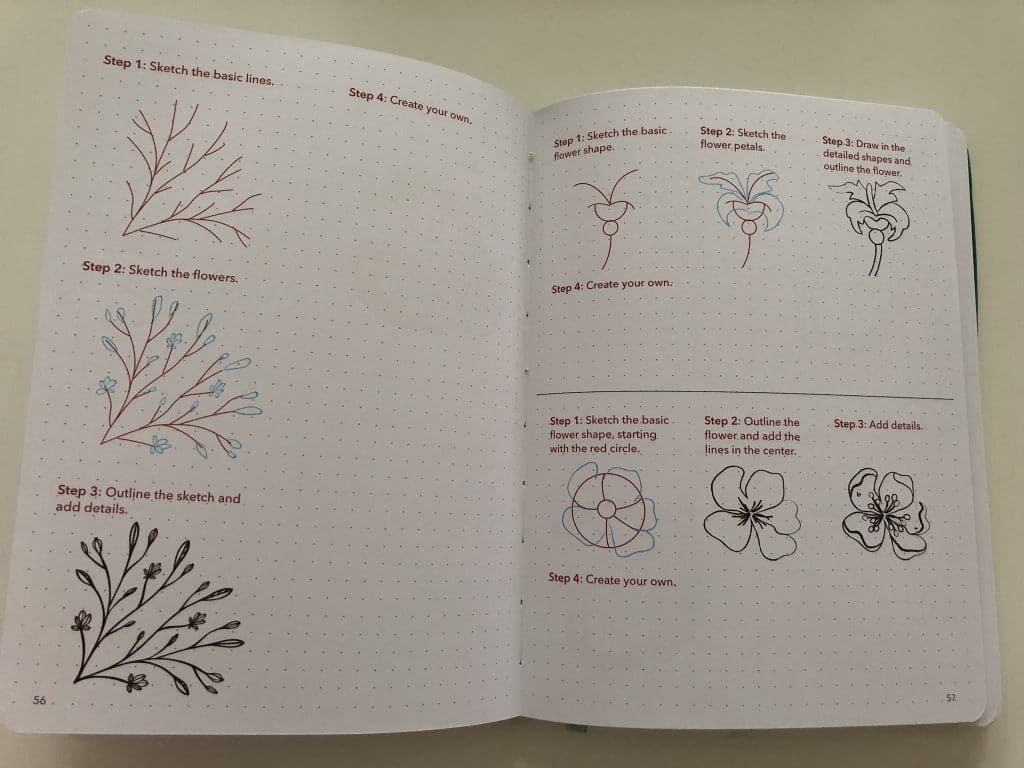 Step 1: Sketch the basic lines.
Step 4: Create your own.
Step 2: Sketch the flowers.
Step 3: Outline the sketch and
add details.
56
Step 1: Sketch the basic
flower shape.
Step 2: Sketch the
flower petals.
Step 3: Draw in the
detailed shapes and
outline the flower.
Step 4: Create your own.
Step 1: Sketch the basic
flower shape, starting
with the red circle.
Step 2: Outline the
flower and add the
lines in the center.
Step 3: Add details.
Step 4: Create your own.
57